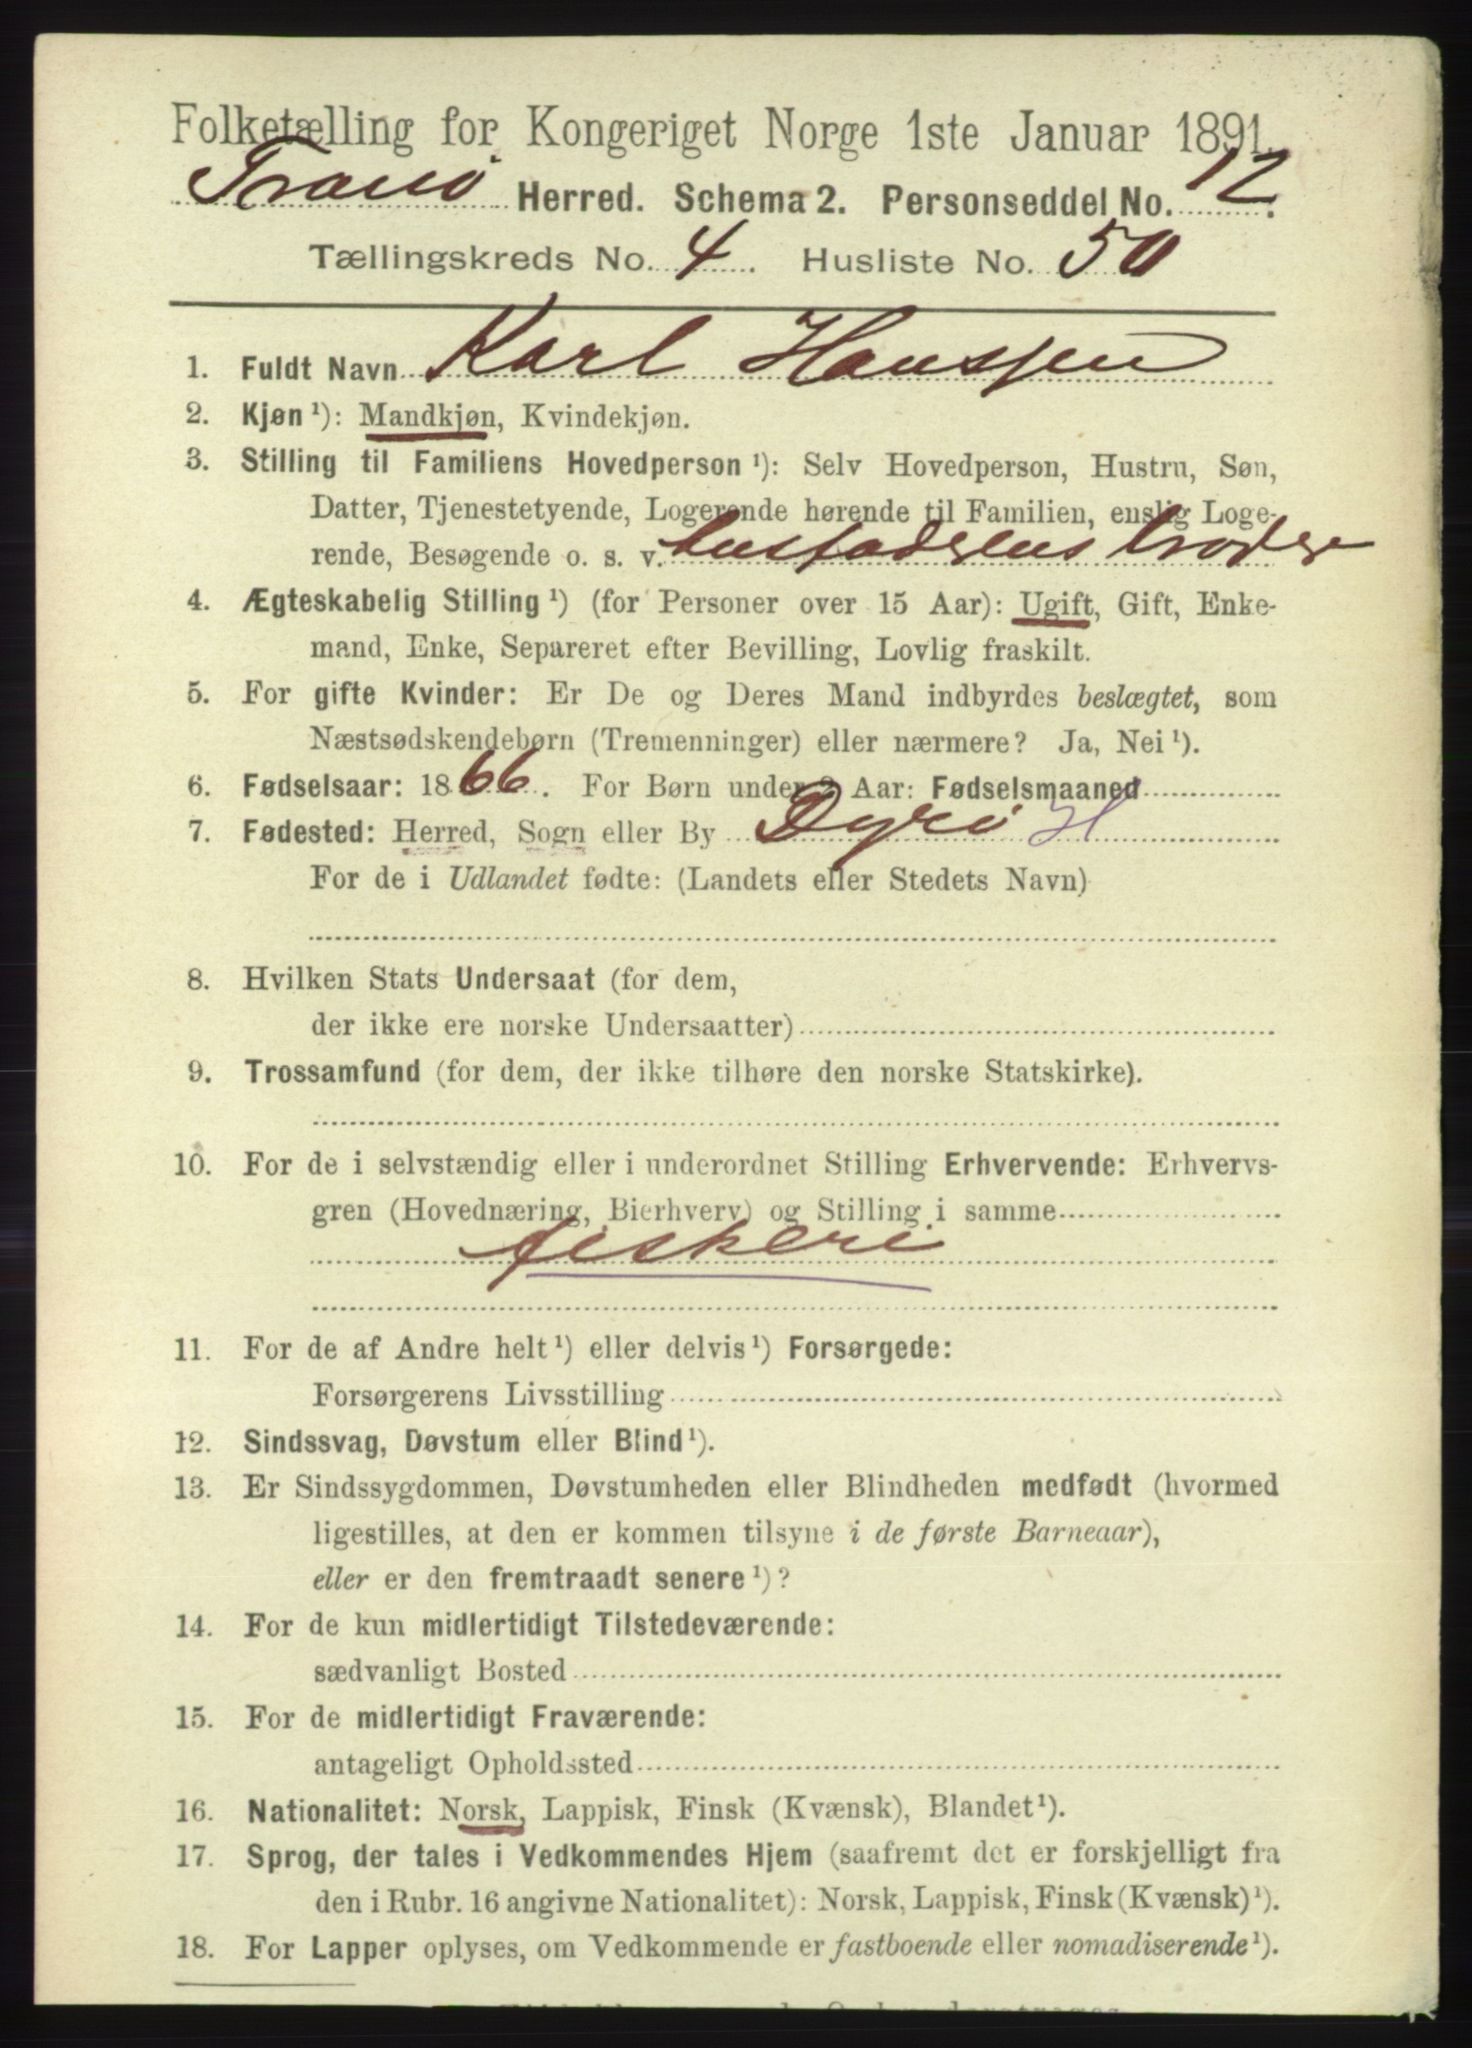 Folketælling for Kongeriget Norge 1ste Januar 1891.
Tranø Herred. Schema 2. Personseddel No. 12.
Tællingskreds No. 4. Husliste No. 50
1. Fuldt Navn Karl Hanssen
2. Kjøn ¹): Mandkjøn, Kvindekjøn.
3. Stilling til Familiens Hovedperson ¹): Selv Hovedperson, Hustru, Søn,
Datter, Tjenestetyende, Logerende hørende til Familien, enslig Loge-
rende, Besøgende o. s. v. husfaderens broder
4. Ægteskabelig Stilling ¹) (for Personer over 15 Aar): Ugift, Gift, Enke-
mand, Enke, Separeret efter Bevilling, Lovlig fraskilt.
5. For gifte Kvinder: Er De og Deres Mand indbyrdes beslægtet, som
Næstsødskendebørn (Tremenninger) eller nærmere? Ja, Nei ¹).
6. Fødselsaar: 1866. For Børn under 2 Aar: Fødselsmaaned
7. Fødested: Herred, Sogn eller By Dyrø H
For de i Udlandet fødte: (Landets eller Stedets Navn)
8. Hvilken Stats Undersaat (for dem,
der ikke ere norske Undersaatter)
9. Trossamfund (for dem, der ikke tilhøre den norske Statskirke).
10. For de i selvstændig eller i underordnet Stilling Erhvervende: Erhvervs-
gren (Hovednæring, Bierhverv) og Stilling i samme
fiskeri
11. For de af Andre helt ¹) eller delvis ¹) Forsørgede:
Forsørgerens Livsstilling
12. Sindssvag, Døvstum eller Blind ¹).
13. Er Sindssygdommen, Døvstumheden eller Blindheden medfødt (hvormed
ligestilles, at den er kommen tilsyne i de første Barneaar),
eller er den fremtraadt senere ¹)?
14. For de kun midlertidigt Tilstedeværende:
sædvanligt Bosted
15. For de midlertidigt Fraværende:
antageligt Opholdssted
16. Nationalitet: Norsk, Lappisk, Finsk (Kvænsk), Blandet ¹).
17. Sprog, der tales i Vedkommendes Hjem (saafremt det er forskjelligt fra
den i Rubr. 16 angivne Nationalitet): Norsk, Lappisk, Finsk (Kvænsk) ¹).
18. For Lapper oplyses, om Vedkommende er fastboende eller nomadiserende ¹).